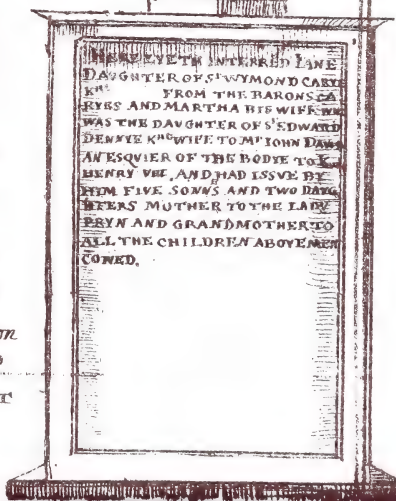 HERE LYETH INTERRED IANE
DAUGHTER OF Sr WYMOND CARYE
KHt FROM THE BARONS CA
RYES AND MARTHA HIS WIFE WH
WAS THE DAUGHTER OF Sr EDWARD
DENNYE KHt WIFE TO Mr IOHN DAW
AN ESQVIER OF THE BODYE TO K
HENRY VIII. AND HAD ISSVE BY
HIM FIVE SONNS AND TWO DAVG
HTERS MOTHER TO THE LADY
PRYN AND GRANDMOTHER TO
ALL THE CHILDREN ABOVEMEN
CONED.